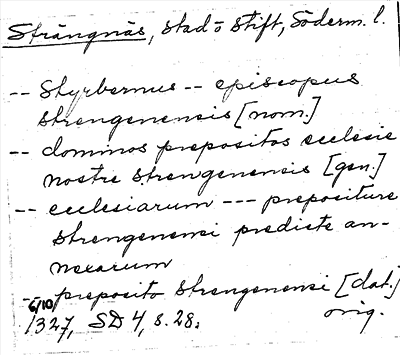 Strängnäs, stad o stift, Söderm. l.
-- Styrbernus -- episcopus
strengenensis [nom.]
-- dominos prepositos ecclesie
nostre strengenensis [gen.]
-- ecclesiarum --- prepositure
strengenensi predicte an-
nexarum
-- preposito strengenensi [dat.]
6/10 1327, SD 4, s. 28. orig.